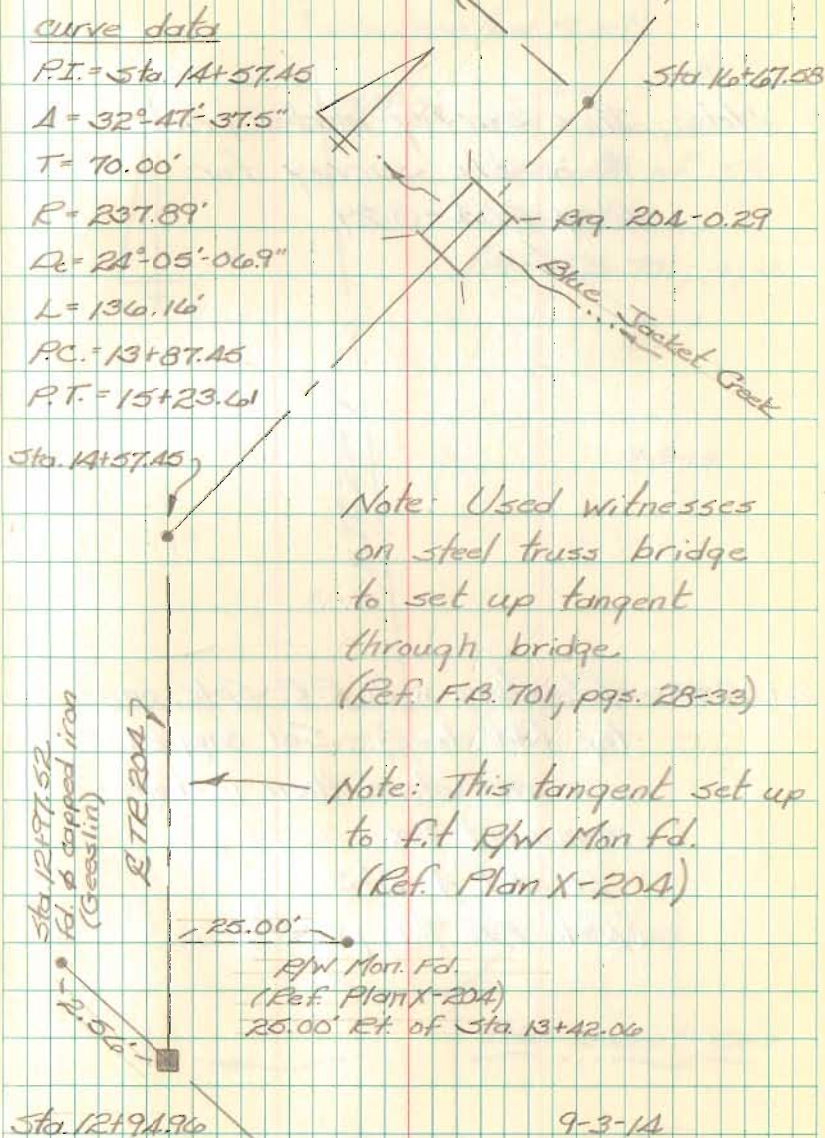 curve data
P.I. = Sta. 14+57.45
Δ = 32°-47'-37.5"
T = 70.00'
R = 237.89'
Dc = 24°-05'-06.9"
L = 136.16'
P.C. = 13+87.45
P.T. = 15+23.61
Sta. 16+67.58
Brg. 204-0.29
Blue Jacket Creek
Sta. 14+57.45
Note: Used witnesses
on steel truss bridge
to set up tangent
through bridge
(Ref. F.B. 701, pgs. 28-33)
℄ TR 204
Note: This tangent set up
to fit R/W Mon fd.
(Ref. Plan X-204)
Sta. 12+97.52
fd. ⌀ capped iron
(Geeslin)
25.00'
R/W Mon. Fd.
(Ref. Plan X-204)
25.00' Rt. of Sta. 13+42.06
2.56'
Sta. 12+94.96
9-3-14